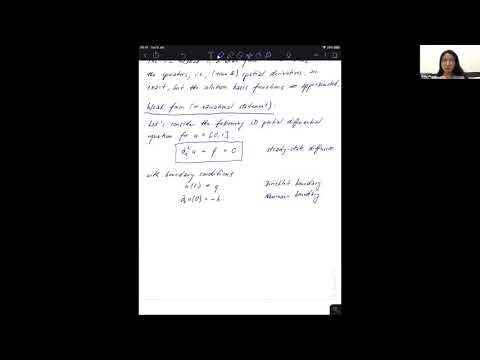 the equations, i.e., spatial derivatives, are
exact, but the solution basis functions are approximated.
Weak form (= variational statement):
Let's consider the following 1D partial differential
equation for u ∈ [0,1]
∂ₓ²u + f = 0 steady-state diffusion
with boundary conditions
u(1) = g Dirichlet boundary
∂ₓu(0) = -h Neumann boundary